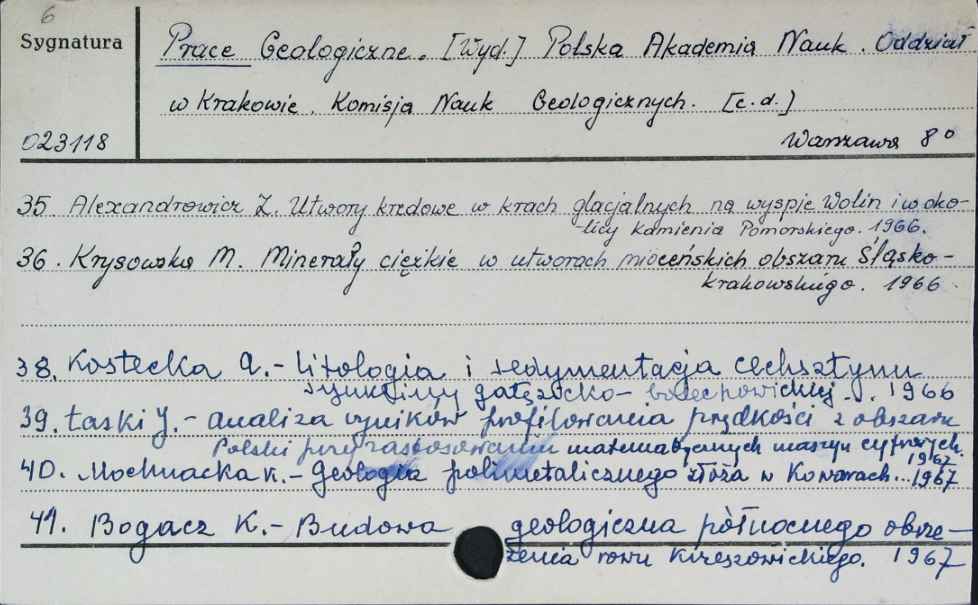 6
Sygnatura
Prace Geologiczne. [Wyd.] Polska Akademia Nauk. Oddział
w Krakowie. Komisja Nauk Geologicznych. [c.d.]
023118
Warszawa 8°
35. Alexandrowicz Z. Utwory kredowe w krach glacjalnych na wyspie Wolin i w oko-
licy Kamienia Pomorskiego. 1966.
36. Krysowska M. Minerały ciężkie w utworach mioceńskich obszaru Śląsko-
krakowskiego. 1966.
38. Kostecka A. - Litologia i sedymentacja cechsztynu
synkliny gałęzicko-bolechowickiej. 1966
39. Łaski J. - Analiza wyników profilowania prędkości z obszaru
Polski przy zastosowaniu matematycznych maszyn cyfrowych.
1967
40. Mochnacka K. - Geologia polimetalicznego złóża w Kowarach. 1967
41. Bogacz K. - Budowa geologiczna północnego obrze-
żenia rowu krzeszowickiego. 1967